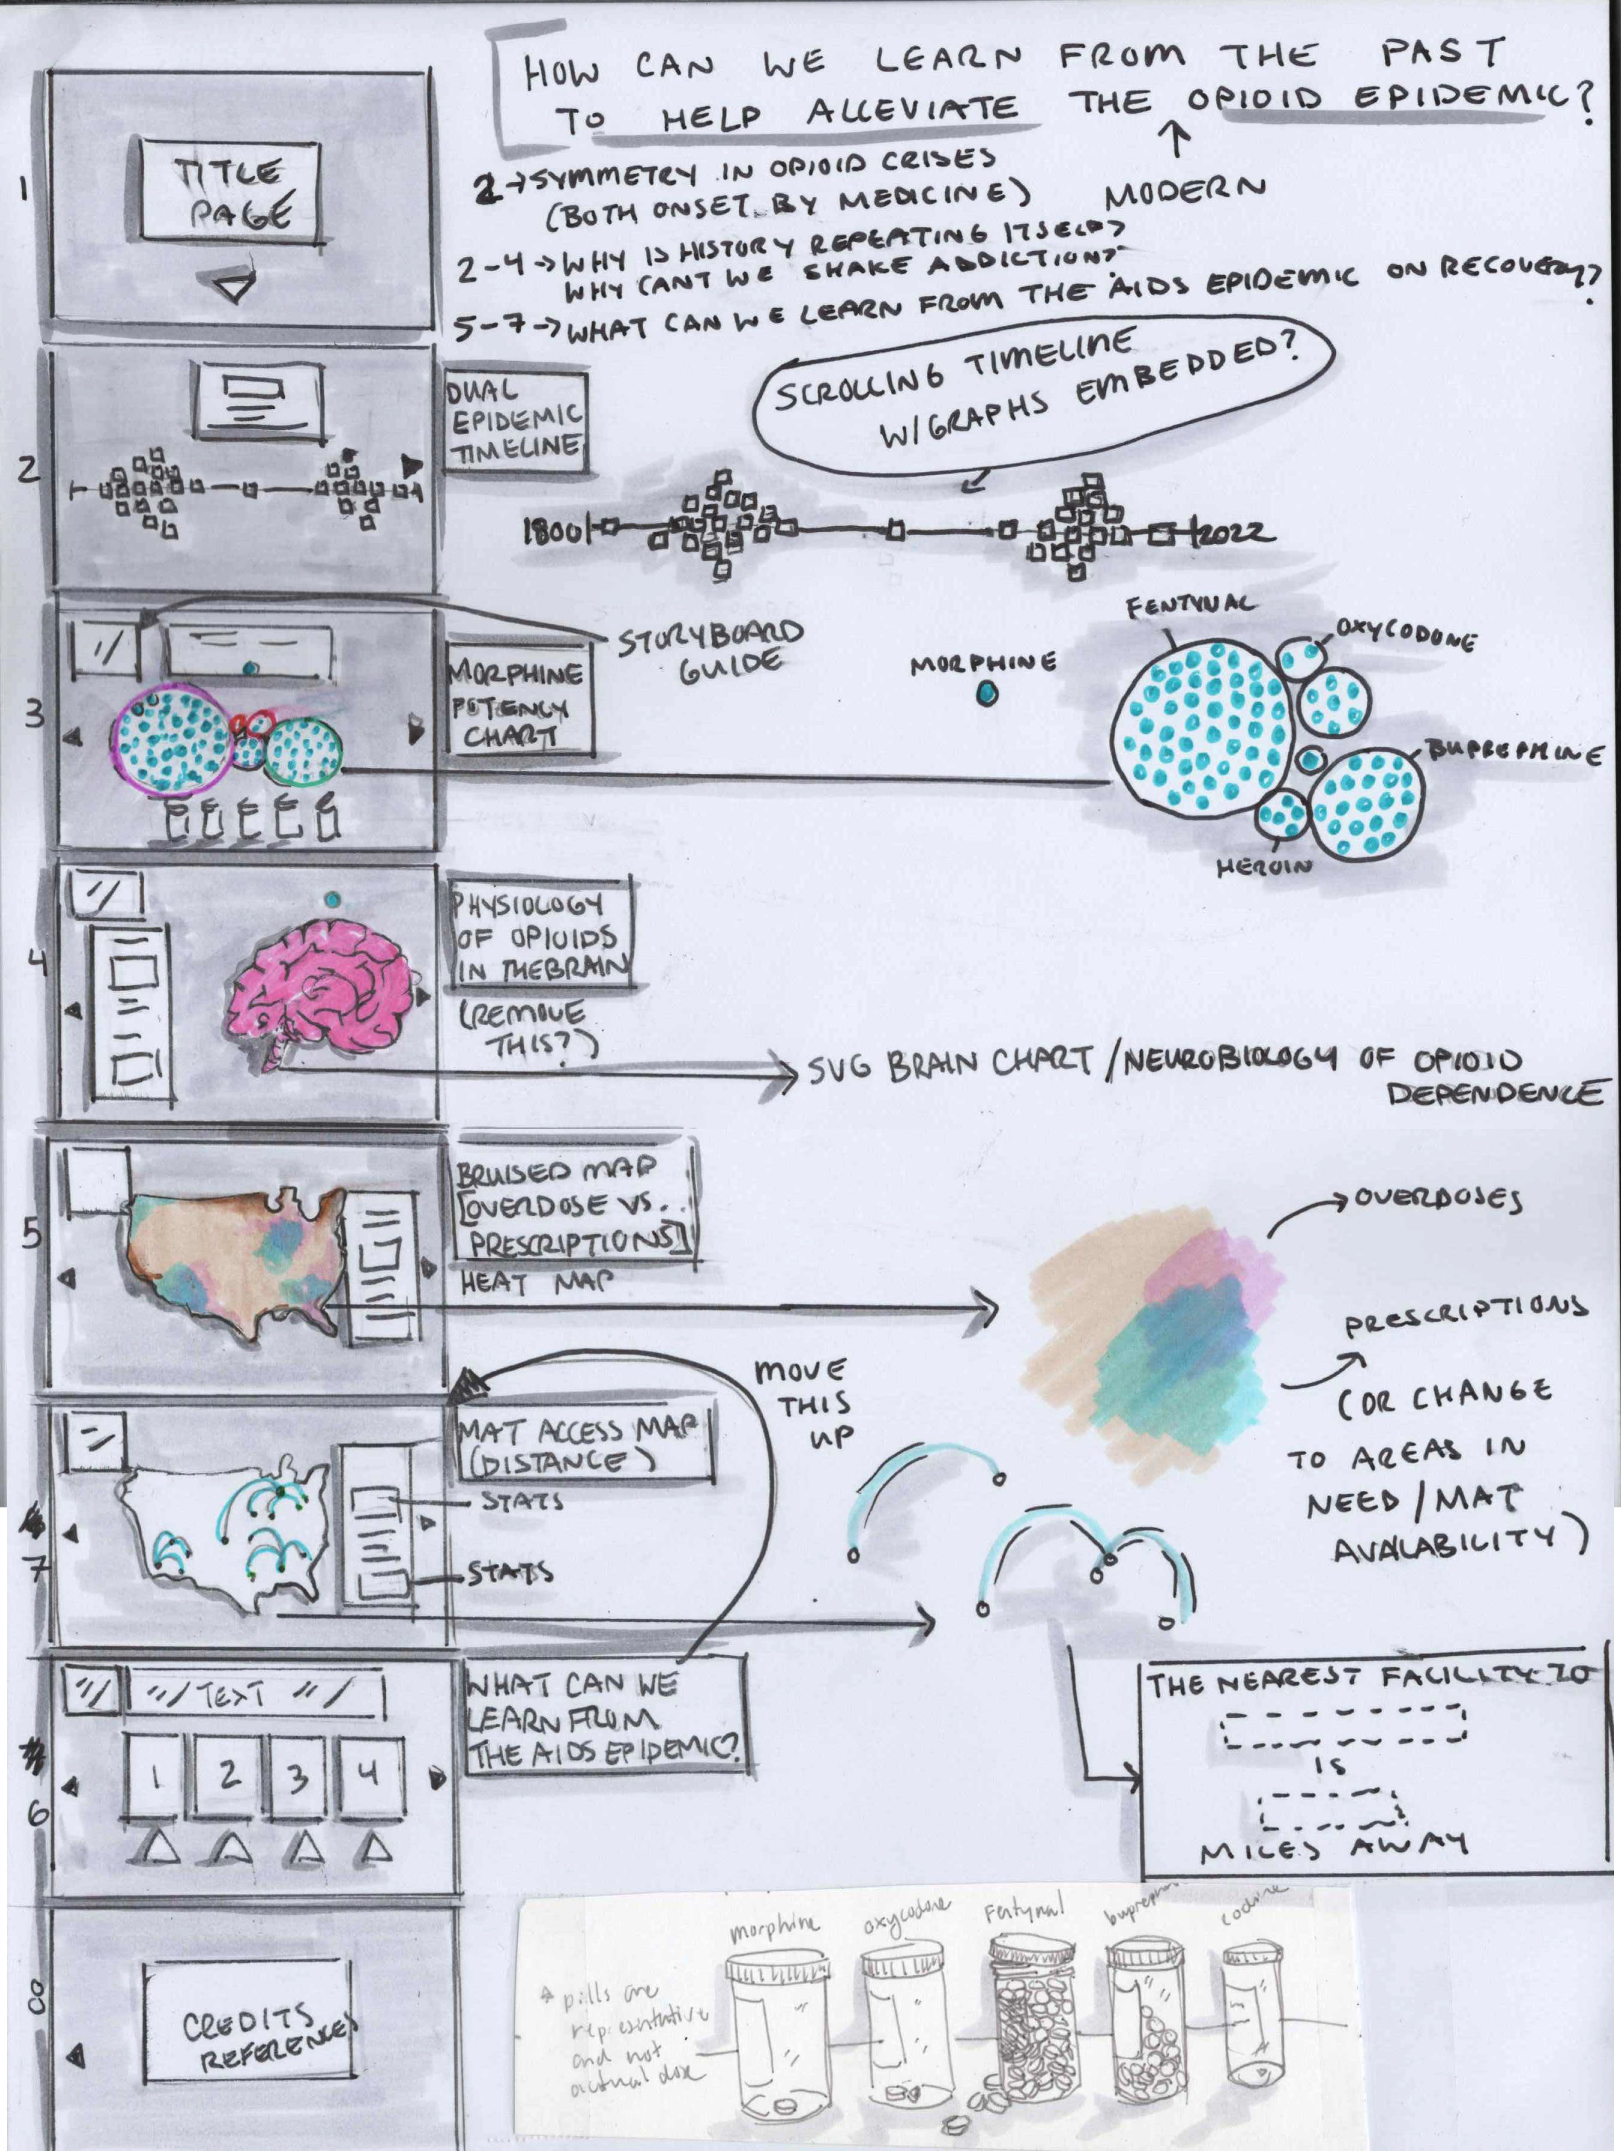 HOW CAN WE LEARN FROM THE PAST
TO HELP ALLEVIATE THE OPIOID EPIDEMIC?
MODERN
2→SYMMETRY IN OPIOID CRISES
(BOTH ONSET BY MEDICINE)
2-4→WHY IS HISTORY REPEATING ITSELF?
WHY CANT WE SHAKE ADDICTION?
5-7→WHAT CAN WE LEARN FROM THE AIDS EPIDEMIC ON RECOVERY?
1
TITLE
PAGE
2
DUAL
EPIDEMIC
TIMELINE
SCROLLING TIMELINE
W/GRAPHS EMBEDDED?
1800
2022
3
STORYBOARD
GUIDE
MORPHINE
POTENCY
CHART
MORPHINE
FENTYNAL
OXYCODONE
BUPREPHINE
HEROIN
4
PHYSIOLOGY
OF OPIOIDS
IN THE BRAIN
(REMOVE
THIS?)
SVG BRAIN CHART/NEUROBIOLOGY OF OPIOID
DEPENDENCE
5
BRUISED MAP
[OVERDOSE VS.
PRESCRIPTIONS]
HEAT MAP
OVERDOSES
PRESCRIPTIONS
(OR CHANGE
TO AREAS IN
NEED/MAT
AVAILABILITY)
MOVE
THIS
UP
7
MAT ACCESS MAP
(DISTANCE)
STATS
STATS
THE NEAREST FACILITY TO
IS
MILES AWAY
6
TEXT
1 2 3 4
WHAT CAN WE
LEARN FROM
THE AIDS EPIDEMIC?
8
CREDITS
REFERENCES
morphine
oxycodone
Fentynal
codine
* pills are
representative
and not
actual dose